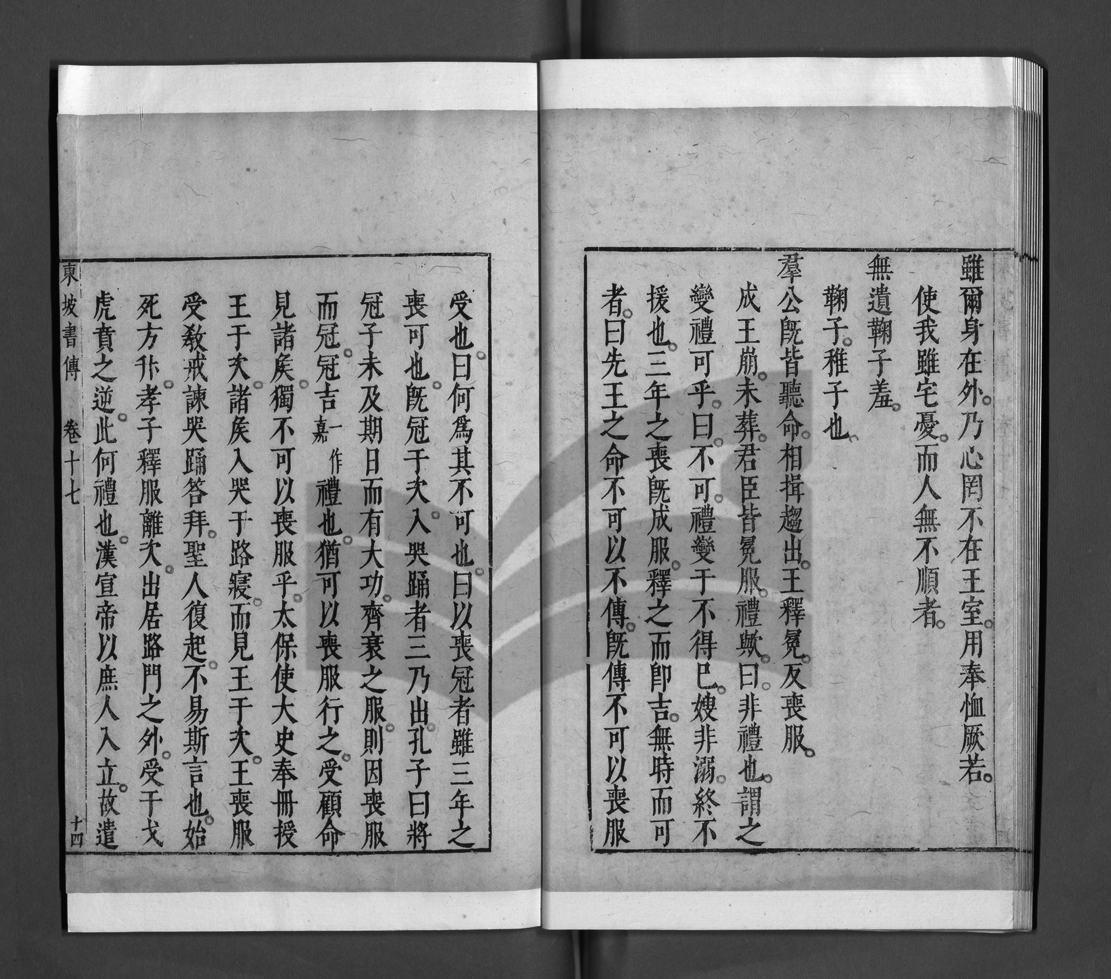 雖爾身在外。乃心罔不在王室。用奉恤厥若。
使我雖宅憂。而人無不順者。
無遺鞠子羞。
鞠子。稚子也。
羣公旣皆聽命。相揖趨出。王釋冕。反喪服。
成王崩。未葬。君臣皆冕服。禮歟。曰。非禮也。謂之
變禮可乎。曰。不可。禮變于不得已。嫂非溺。終不
援也。三年之喪旣成服。釋之而卽吉。無時而可
者。曰先王之命不可以不傳。旣傳不可以喪服
受也。曰何爲其不可也。曰以喪冠者雖三年之
喪可也。旣冠于次。入哭踊者三乃出。孔子曰將
冠子未及期日而有大功。齊衰之服。則因喪服
而冠。冠吉一作嘉禮也。猶可以喪服行之。受顧命
見諸矦。獨不可以喪服乎。太保使大史奉冊授
王于次。諸矦入哭于路寢。而見王于次。王喪服
受敎戒諫哭踊答拜。聖人復起。不易斯言也。始
死方升。孝子釋服離次。出居路門之外。受于戈
虎賁之逆。此何禮也。漢宣帝以庶人入立。故遣
東坡書傳 卷十七 十四